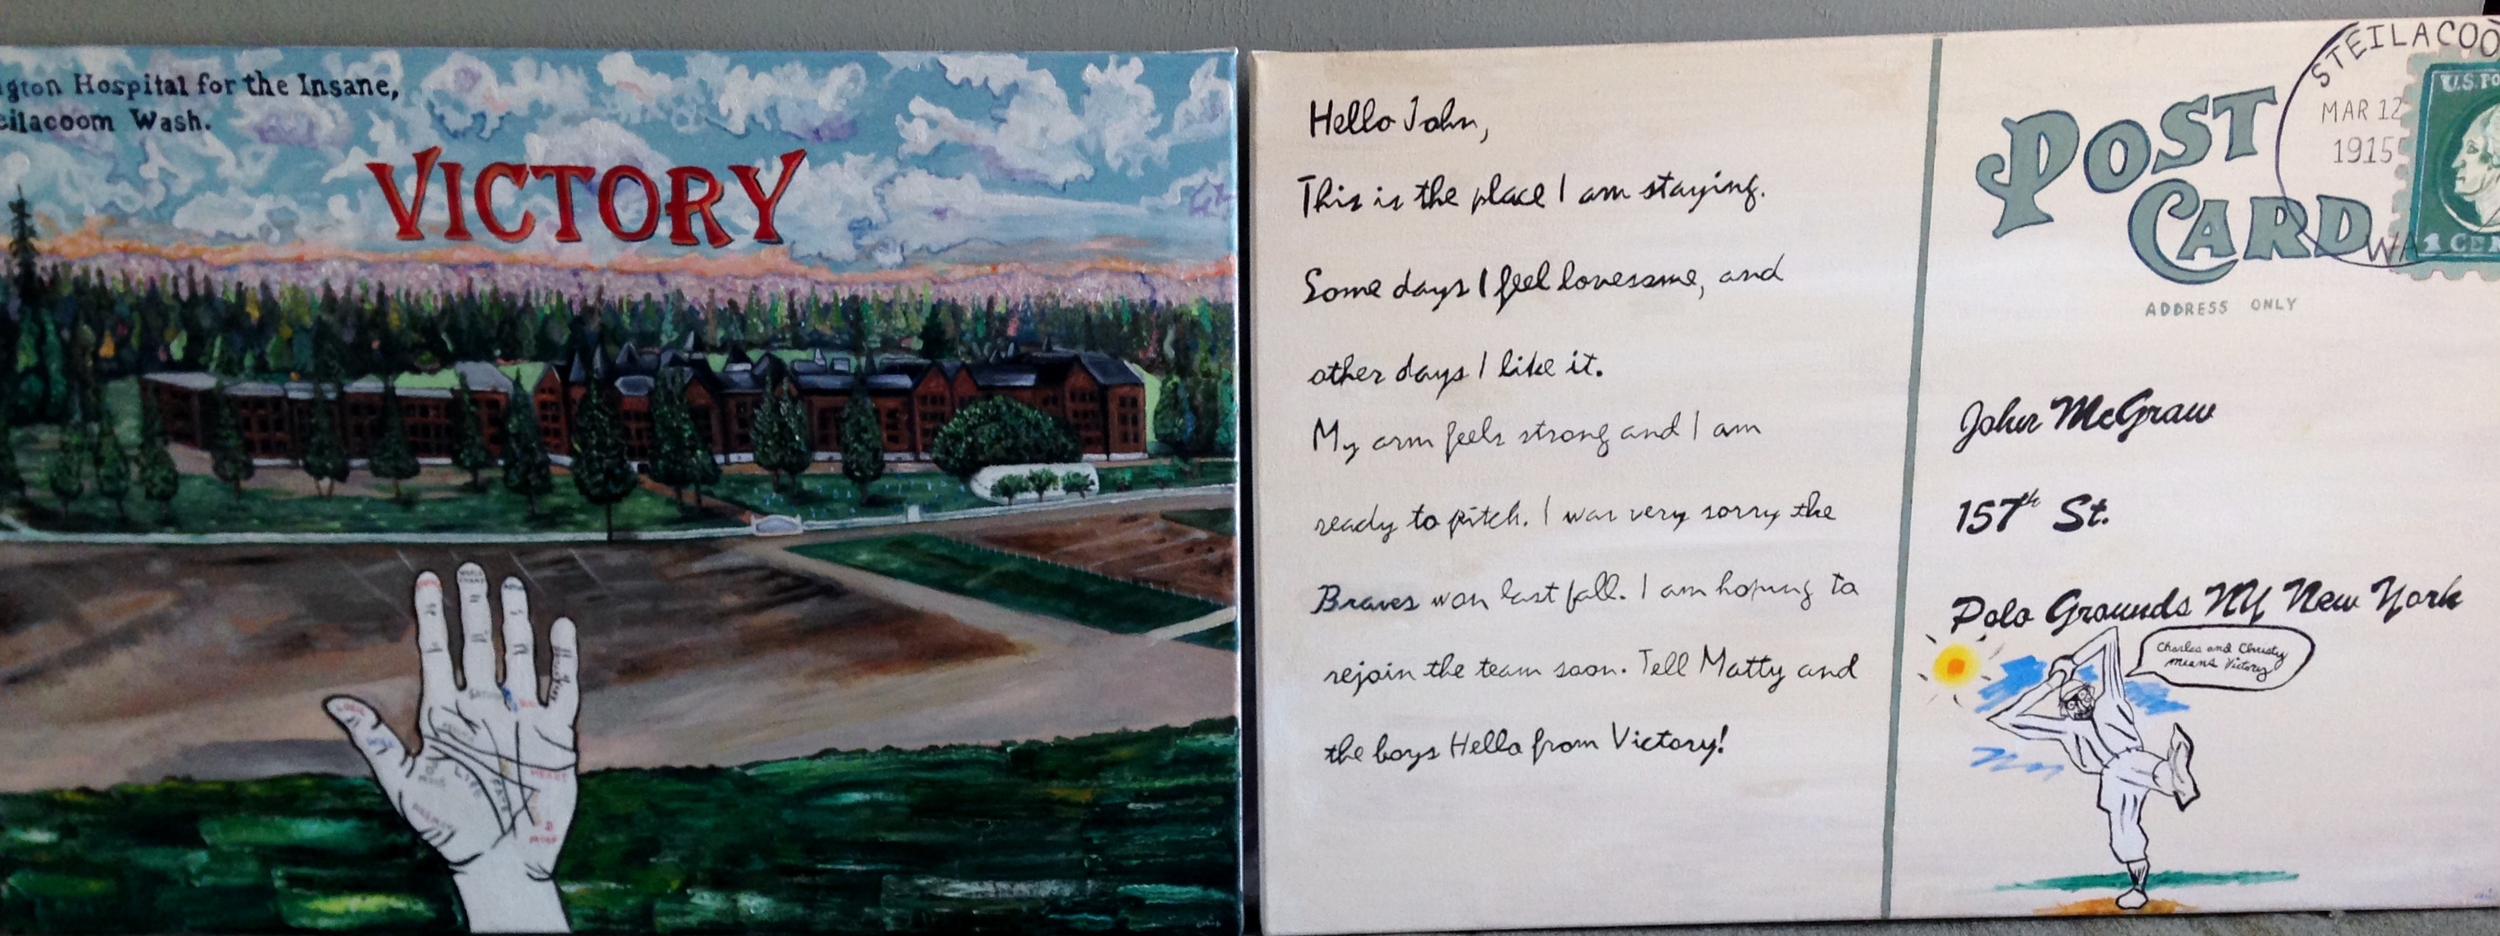 gton Hospital for the Insane,
eilacoom Wash.
VICTORY
LOGIC
WILL
LIFE
FATE
HEART
Hello John,
This is the place I am staying.
Some days I feel lonesome, and
other days I like it.
My arm feels strong and I am
ready to pitch. I was very sorry the
Braves won last fall. I am hoping to
rejoin the team soon. Tell Matty and
the boys Hello from Victory!
POST
CARD
ADDRESS ONLY
STEILACOO
MAR 12
1915
WA
U.S. PO
1 CEN
John McGraw
157th St.
Polo Grounds NY New York
Charles and Christy
means Victory